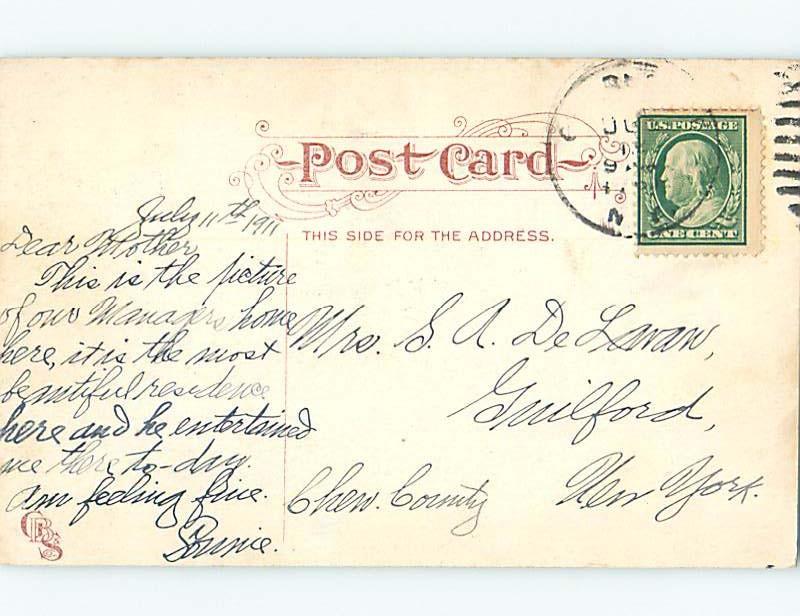 Post Card
THIS SIDE FOR THE ADDRESS.
U.S. POSTAGE
ONE CENT
July 11th 1911
Dear Mother,
This is the picture
of our Managers home
here, it is the most
beautiful residence
here and he entertained
me there to-day.
Am feeling fine.
Mrs. S. A. De Lavan,
Guilford,
Chen. County
New York.